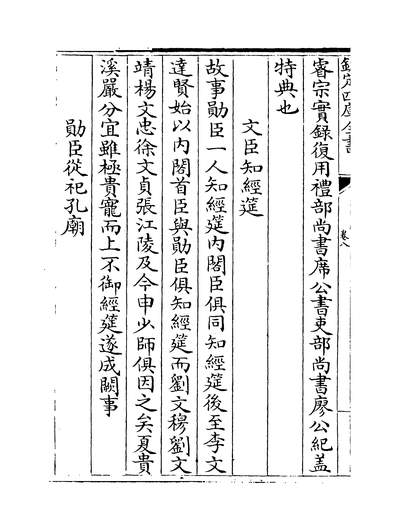 欽定四庫全書
卷八
睿宗實錄復用禮部尚書席公書吏部尚書廖公紀蓋
特典也
文臣知經筵
故事勛臣一人知經筵内閣臣俱同知經筵後至李文
達賢始以内閣首臣與勛臣俱知經筵而劉文穆劉文
靖楊文忠徐文貞張江陵及今申少師俱因之矣夏貴
溪嚴分宜雖極貴寵而上不御經筵遂成闕事
勛臣從祀孔廟